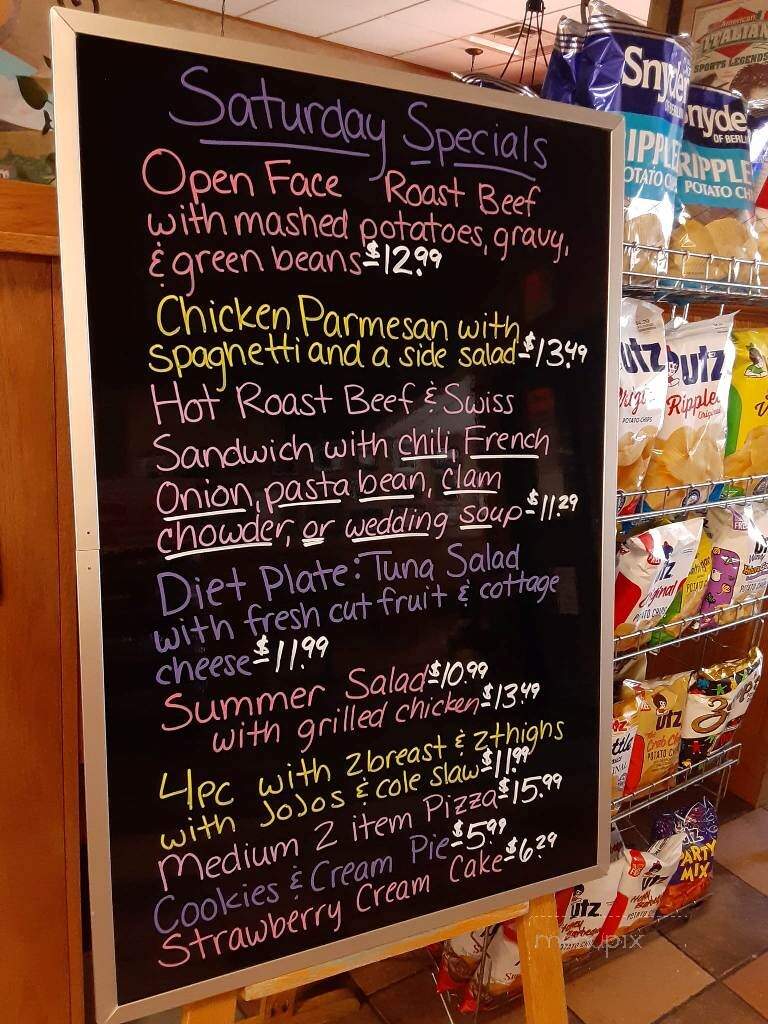 Saturday Specials
Open Face Roast Beef
with mashed potatoes, gravy,
& green beans $12.99
Chicken Parmesan with
spaghetti and a side salad $13.49
Hot Roast Beef & Swiss
Sandwich with chili, French
Onion, pasta bean, clam
chowder, or wedding soup $11.29
Diet Plate: Tuna Salad
with fresh cut fruit & cottage
cheese $11.99
Summer Salad $10.99
with grilled chicken $13.49
4pc with 2breast & 2thighs
with JoJos & cole slaw $11.99
Medium 2 item Pizza $15.99
Cookies & Cream Pie $5.99
Strawberry Cream Cake $6.29
American
ITALIAN
SPORTS LEGENDS
Snyde
OF BERL
RIPPLE
POTATO CH
utz
utz
Ripples
Original
POTATO CHIPS
utz
POTATO CHIPS
utz
Crab Ch
POTATO
PARTY
MIX
utz
Honey
utz
menupix